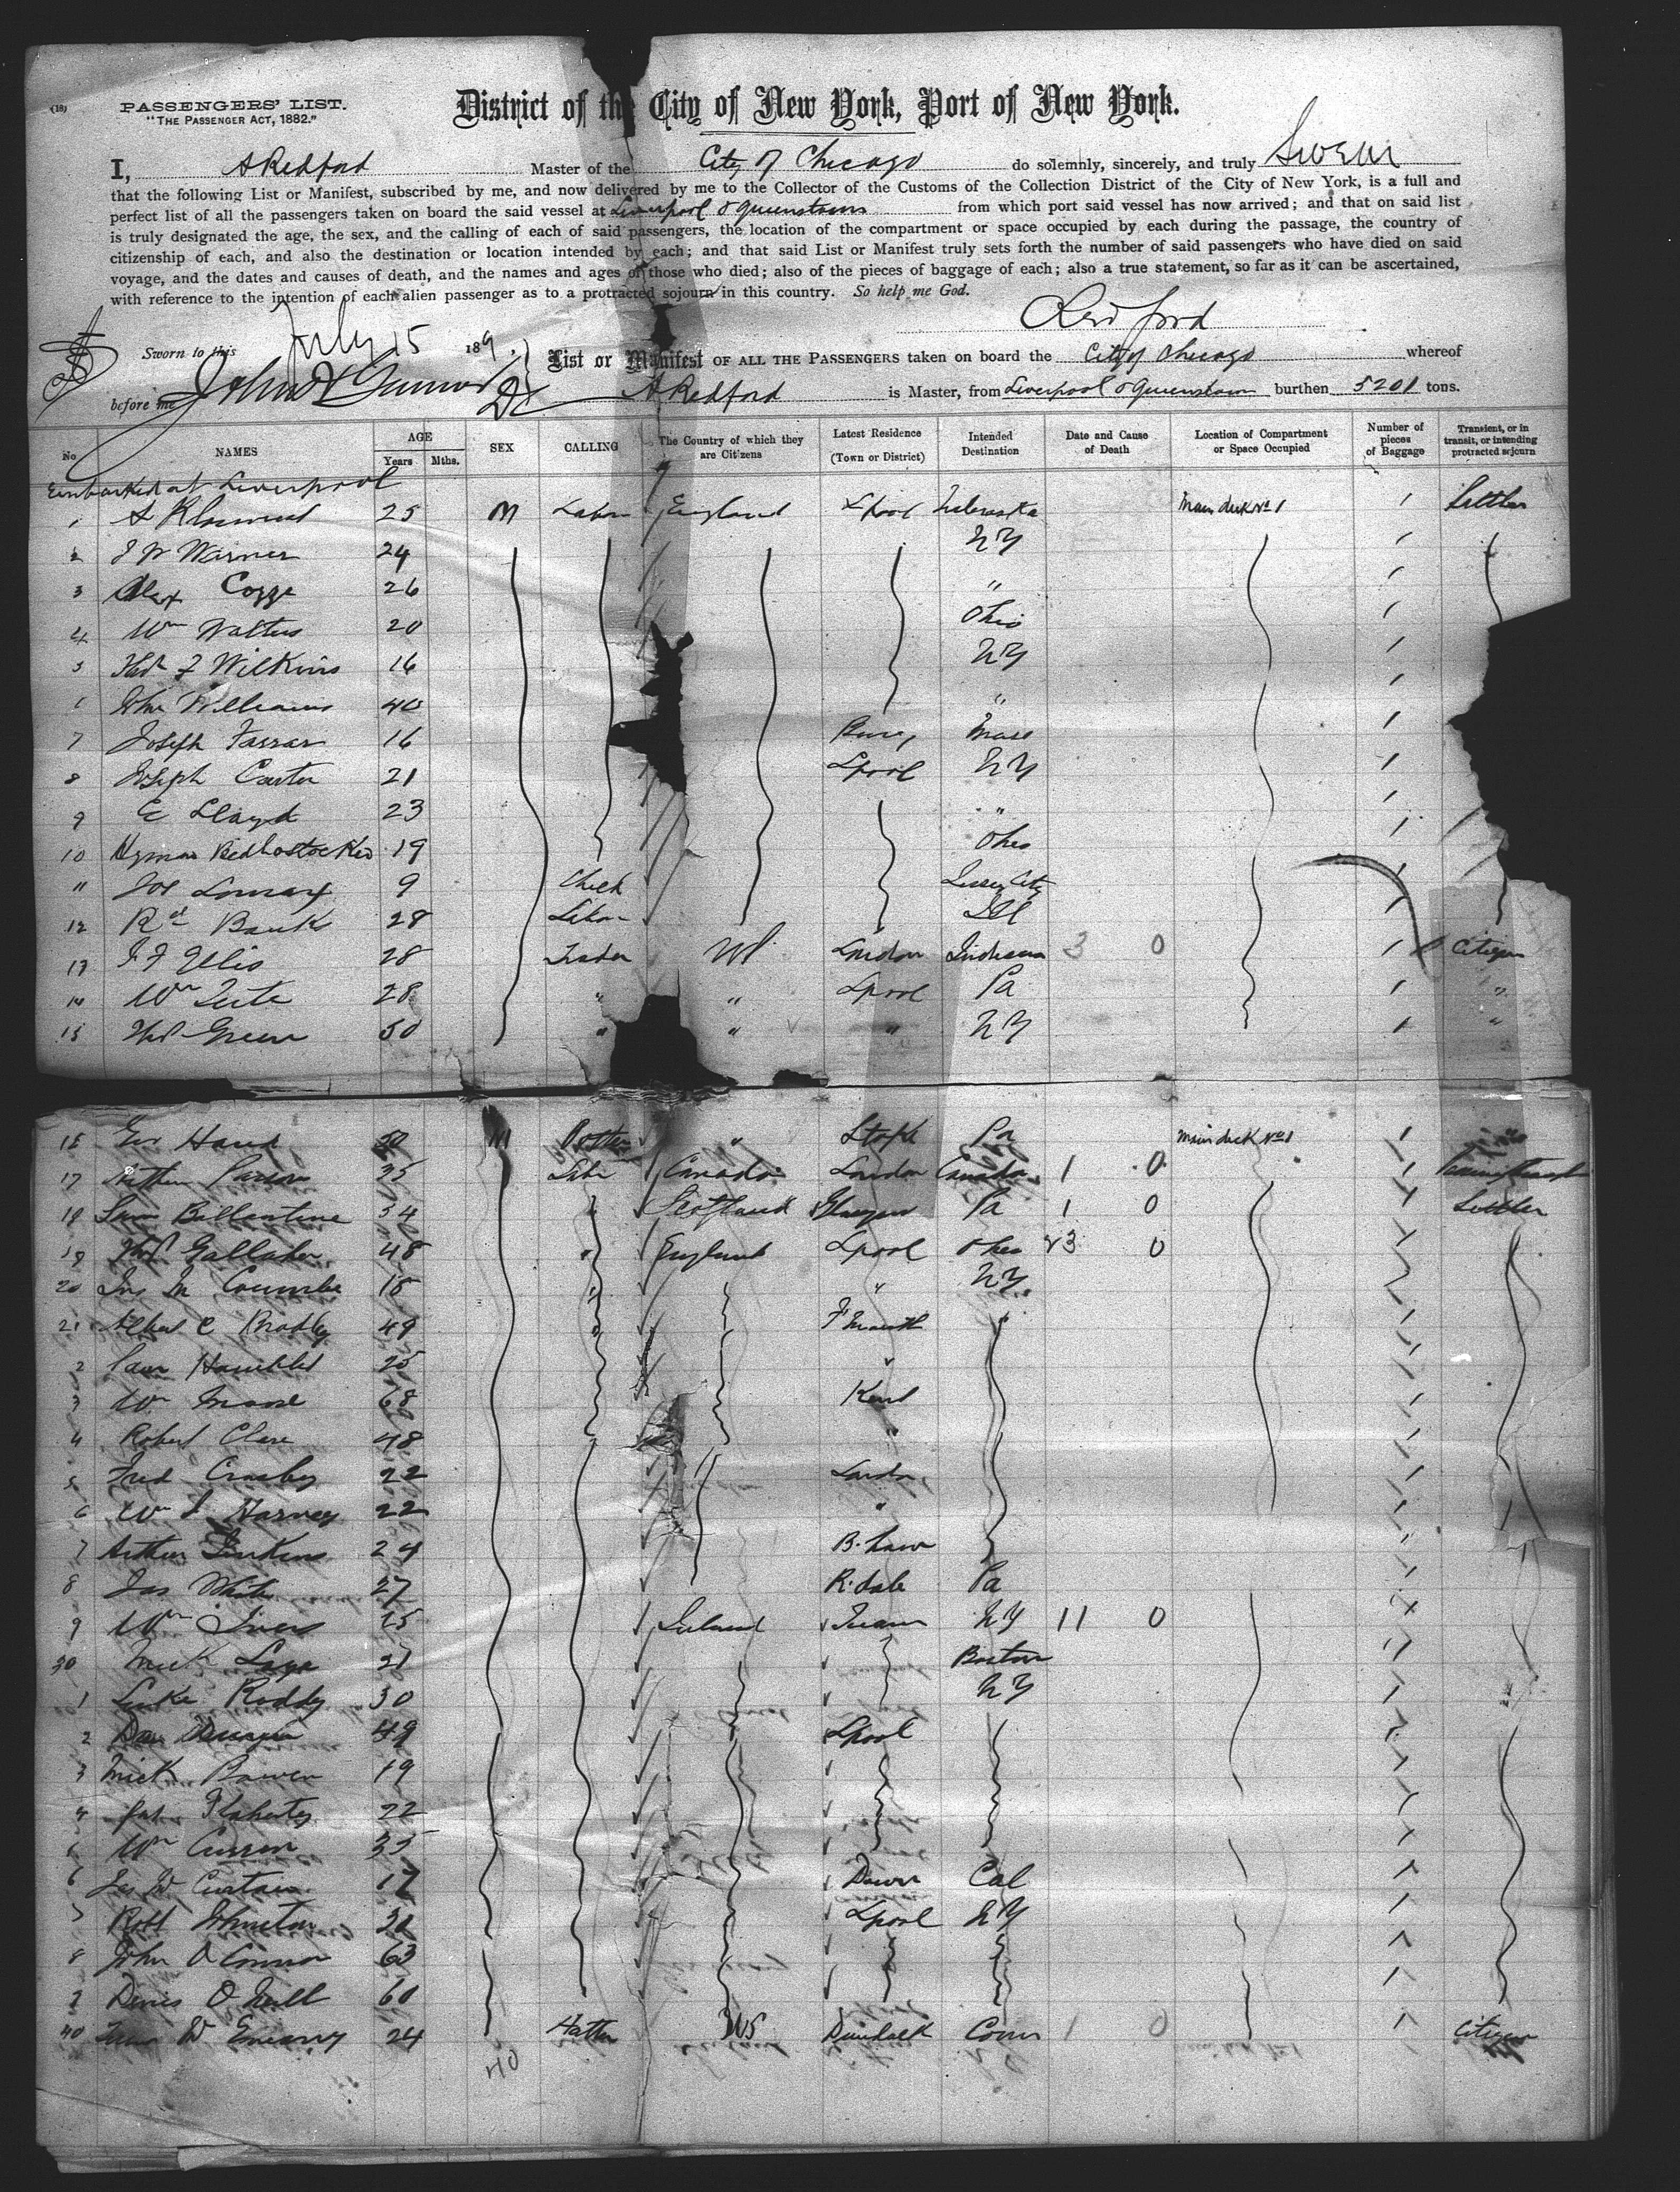 (18)
PASSENGERS' LIST.
"THE PASSENGER ACT, 1882."
District of the City of New York, Port of New York.
I, A Redford Master of the City of Chicago do solemnly, sincerely, and truly Swear
that the following List or Manifest, subscribed by me, and now delivered by me to the Collector of the Customs of the Collection District of the City of New York, is a full and
perfect list of all the passengers taken on board the said vessel at Liverpool & Queenstown from which port said vessel has now arrived; and that on said list
is truly designated the age, the sex, and the calling of each of said passengers, the location of the compartment or space occupied by each during the passage, the country of
citizenship of each, and also the destination or location intended by each; and that said List or Manifest truly sets forth the number of said passengers who have died on said
voyage, and the dates and causes of death, and the names and ages of those who died; also of the pieces of baggage of each; also a true statement, so far as it can be ascertained,
with reference to the intention of each alien passenger as to a protracted sojourn in this country. So help me God.
Redford
Sworn to this July 15 189
List or Manifest OF ALL THE PASSENGERS taken on board the City of Chicago whereof
before me John
A Redford is Master, from Liverpool & Queenstown burthen 5201 tons.
No NAMES AGE Years Mths. SEX CALLING The Country of which they are Citizens Latest Residence (Town or District) Intended Destination Date and Cause of Death Location of Compartment or Space Occupied Number of pieces of Baggage Transient, or in transit, or intending protracted sojourn
Embarked at Liverpool
1 A 25 M Labor England Lpool Nebraska Main deck No 1 1 Settler
2 J W Warner 24 NY 1
3 Alex 26 " 1
4 Wm Walters 20 Ohio 1
5 Thos F Wilkins 16 NY 1
6 John Williams 40 " 1
7 Joseph Farrar 16 Bury Mass 1
8 Joseph Carter 21 Lpool NY 1
9 E Lloyd 23 " 1
10 Hyman 19 Ohio 1
11 Joe 9 Child Jersey City 1
12 Rd Bank 28 Labor Ill 1
13 J F Ellis 28 Trader US London Indiana 3 0 1 Citizen
14 Wm 28 " " Lpool Pa 1 "
15 Thos Green 50 " " " NY 1 "
16 Geo Hand 50 M Potter " Stoke Pa Main deck No 1 1
17 Parson 35 Labr Canada London Canada 1 0 1
18 Ballentine 34 " Scotland Glasgow Pa 1 0 1 Settler
19 Thos Gallaher 48 " England Lpool Ohio 23 0 1
20 Coumbe 18 " " NY 1
21 Albert C 49 1
2 Sam 25 " 1
3 Wm 68 Kent 1
4 Robert Clare 48 " 1
5 Fred Crosby 22 London 1
6 Wm Harvey 22 " 1
7 Arthur Jenkins 24 1
8 Jas White 27 R.dale Pa 1
9 Wm 25 Ireland NY 11 0 1
30 Mick 21 Boston 1
1 Luke Roddy 30 NY 1
2 Dan 49 Lpool 1
3 Mick Bowen 19 1
4 Flaherty 22 1
5 Wm Curran 35 1
6 Curtain 17 Down Cal 1
7 Robt Johnston 30 Lpool NY 1
8 John O Connor 63 1
9 Denis O Neill 60 1
40 W 24 Hatter US Dundalk Conn 1 0 1 Citizen
40